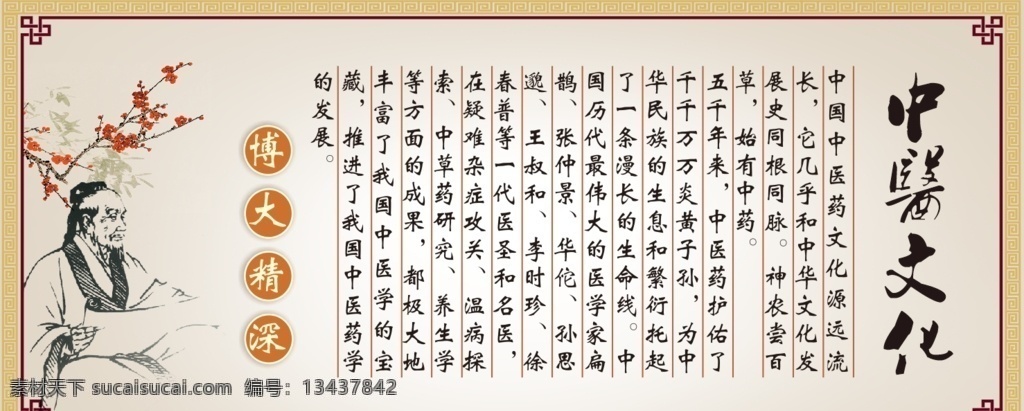 中醫文化
中国中医药文化源远流
长，它几乎和中华文化发
展史同根同脉。神农尝百
草，始有中药。
五千年来，中医药护佑了
千千万万炎黄子孙，为中
华民族的生息和繁衍托起
了一条漫长的生命线。中
国历代最伟大的医学家扁
鹊、张仲景、华佗、孙思
邈、王叔和、李时珍、徐
春普等一代医圣和名医，
在疑难杂症攻关、温病探
索、中草药研究、养生学
等方面的成果，都极大地
丰富了我国中医学的宝
藏，推进了我国中医药学
的发展。
博大精深
素材天下 sucaisucai.com 编号：13437842